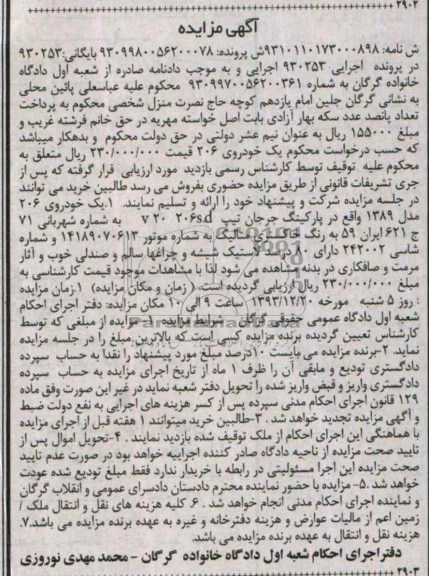 ۲۹۰۲
آگهی مزایده
ش نامه: ۹۳۱۰۱۱۰۱۷۳۰۰۰۸۹۸ش پرونده: ۹۳۰۹۹۸۰۰۵۶۲۰۰۰۷۸ بایگانی:۹۳۰۲۵۳
در پرونده اجرایی ۹۳۰۲۵۳ اجرایی و به موجب دادنامه صادره از شعبه اول دادگاه
خانواده گرگان به شماره ۹۳۰۹۹۷۰۰۵۶۲۰۰۳۶۱ محکوم علیه عباسعلی پائین محلی
به نشانی گرگان جلین امام یازدهم کوچه حاج نصرت منزل شخصی محکوم به پرداخت
تعداد پانصد عدد سکه بهار آزادی بابت اصل خواسته مهریه در حق خانم فرشته غریب و
مبلغ ۱۵۵۰۰۰ ریال به عنوان نیم عشر دولتی در حق دولت محکوم و بدهکار میباشد
که حسب درخواست محکوم یک خودروی ۲۰۶ قیمت ۲۳۰/۰۰۰/۰۰۰ ریال متعلق به
محکوم علیه توقیف توسط کارشناس رسمی بازدید مورد ارزیابی قرار گرفته که پس از
جری تشریفات قانونی از طریق مزایده حضوری بفروش می رسد طالبین خرید می توانند
در جلسه مزایده شرکت و پیشنهاد خود را ارائه و تسلیم نمایند. ۱.یک خودروی ۲۰۶
مدل ۱۳۸۹ واقع در پارکینگ جرجان تیپ ۲۰۶s.d ۲۰ ۷ به شماره شهربانی ۷۱
ج ۶۲۱ ایران ۵۹ به رنگ خاکستری متالیک به شماره موتور ۱۴۱۸۹۰۷۰۶۱۳ و شماره
شاسی ۲۴۲۰۰۲ دارای ۸۰ درصد لاستیک شیشه و چراغها سالم و صندلی خوب و آثار
مرمت و صافکاری در بدنه مشاهده می شود لذا با مشاهدات موجود قیمت کارشناسی به
مبلغ ۲۳۰/۰۰۰/۰۰۰ ریال ارزیابی گردیده است. ( زمان و مکان مزایده) ۱.زمان مزایده
: روز ۵ شنبه مورخه ۱۳۹۳/۱۲/۲۰ ساعت ۹ الی ۱۰ مکان مزایده: دفتر اجرای احکام
شعبه اول دادگاه عمومی حقوقی گرگان شرایط مزایده ۱- مزایده از مبلغی که توسط
کارشناس تعیین گردیده برنده مزایده کسی است که بالاترین مبلغ را در جلسه مزایده
نماید. ۲-برنده مزایده می بایست ۱۰درصد مبلغ مورد پیشنهاد را نقدا به حساب سپرده
دادگستری تودیع و مابقی آن را ظرف ۱ ماه از تاریخ اجرای مزایده به حساب سپرده
دادگستری واریز و قبض واریز شده را تحویل دفتر شعبه نماید در غیر این صورت وفق ماده
۱۲۹ قانون اجرای احکام مدنی سپرده پس از کسر هزینه های اجرایی به نفع دولت ضبط
و آگهی مزایده تجدید خواهد شد . ۳-طالبین خرید میتوانند ۱ هفته قبل از اجرای مزایده
با هماهنگی این اجرای احکام از ملک توقیف شده بازدید نمایند . ۴-تحویل اموال پس از
تایید صحت مزایده از ناحیه دادگاه صادر کننده اجراییه خواهد بود در صورت عدم تایید
صحت مزایده این اجرا مسئولیتی در رابطه با خریدار ندارد فقط مبلغ تودیع شده عودت
خواهد شد .۵- مزایده با حضور نماینده محترم دادستان دادسرای عمومی و انقلاب گرگان
و نماینده اجرای احکام مدنی انجام خواهد شد . ۶. کلیه هزینه های نقل و انتقال ملک /
زمین اعم از مالیات عوارض و هزینه دفترخانه و غیره به عهده برنده مزایده می باشد.۷.
هزینه نقل و انتقال به عهده برنده مزایده می باشد.
دفتراجرای احکام شعبه اول دادگاه خانواده گرگان - محمد مهدی نوروزی
۲۹۰۳